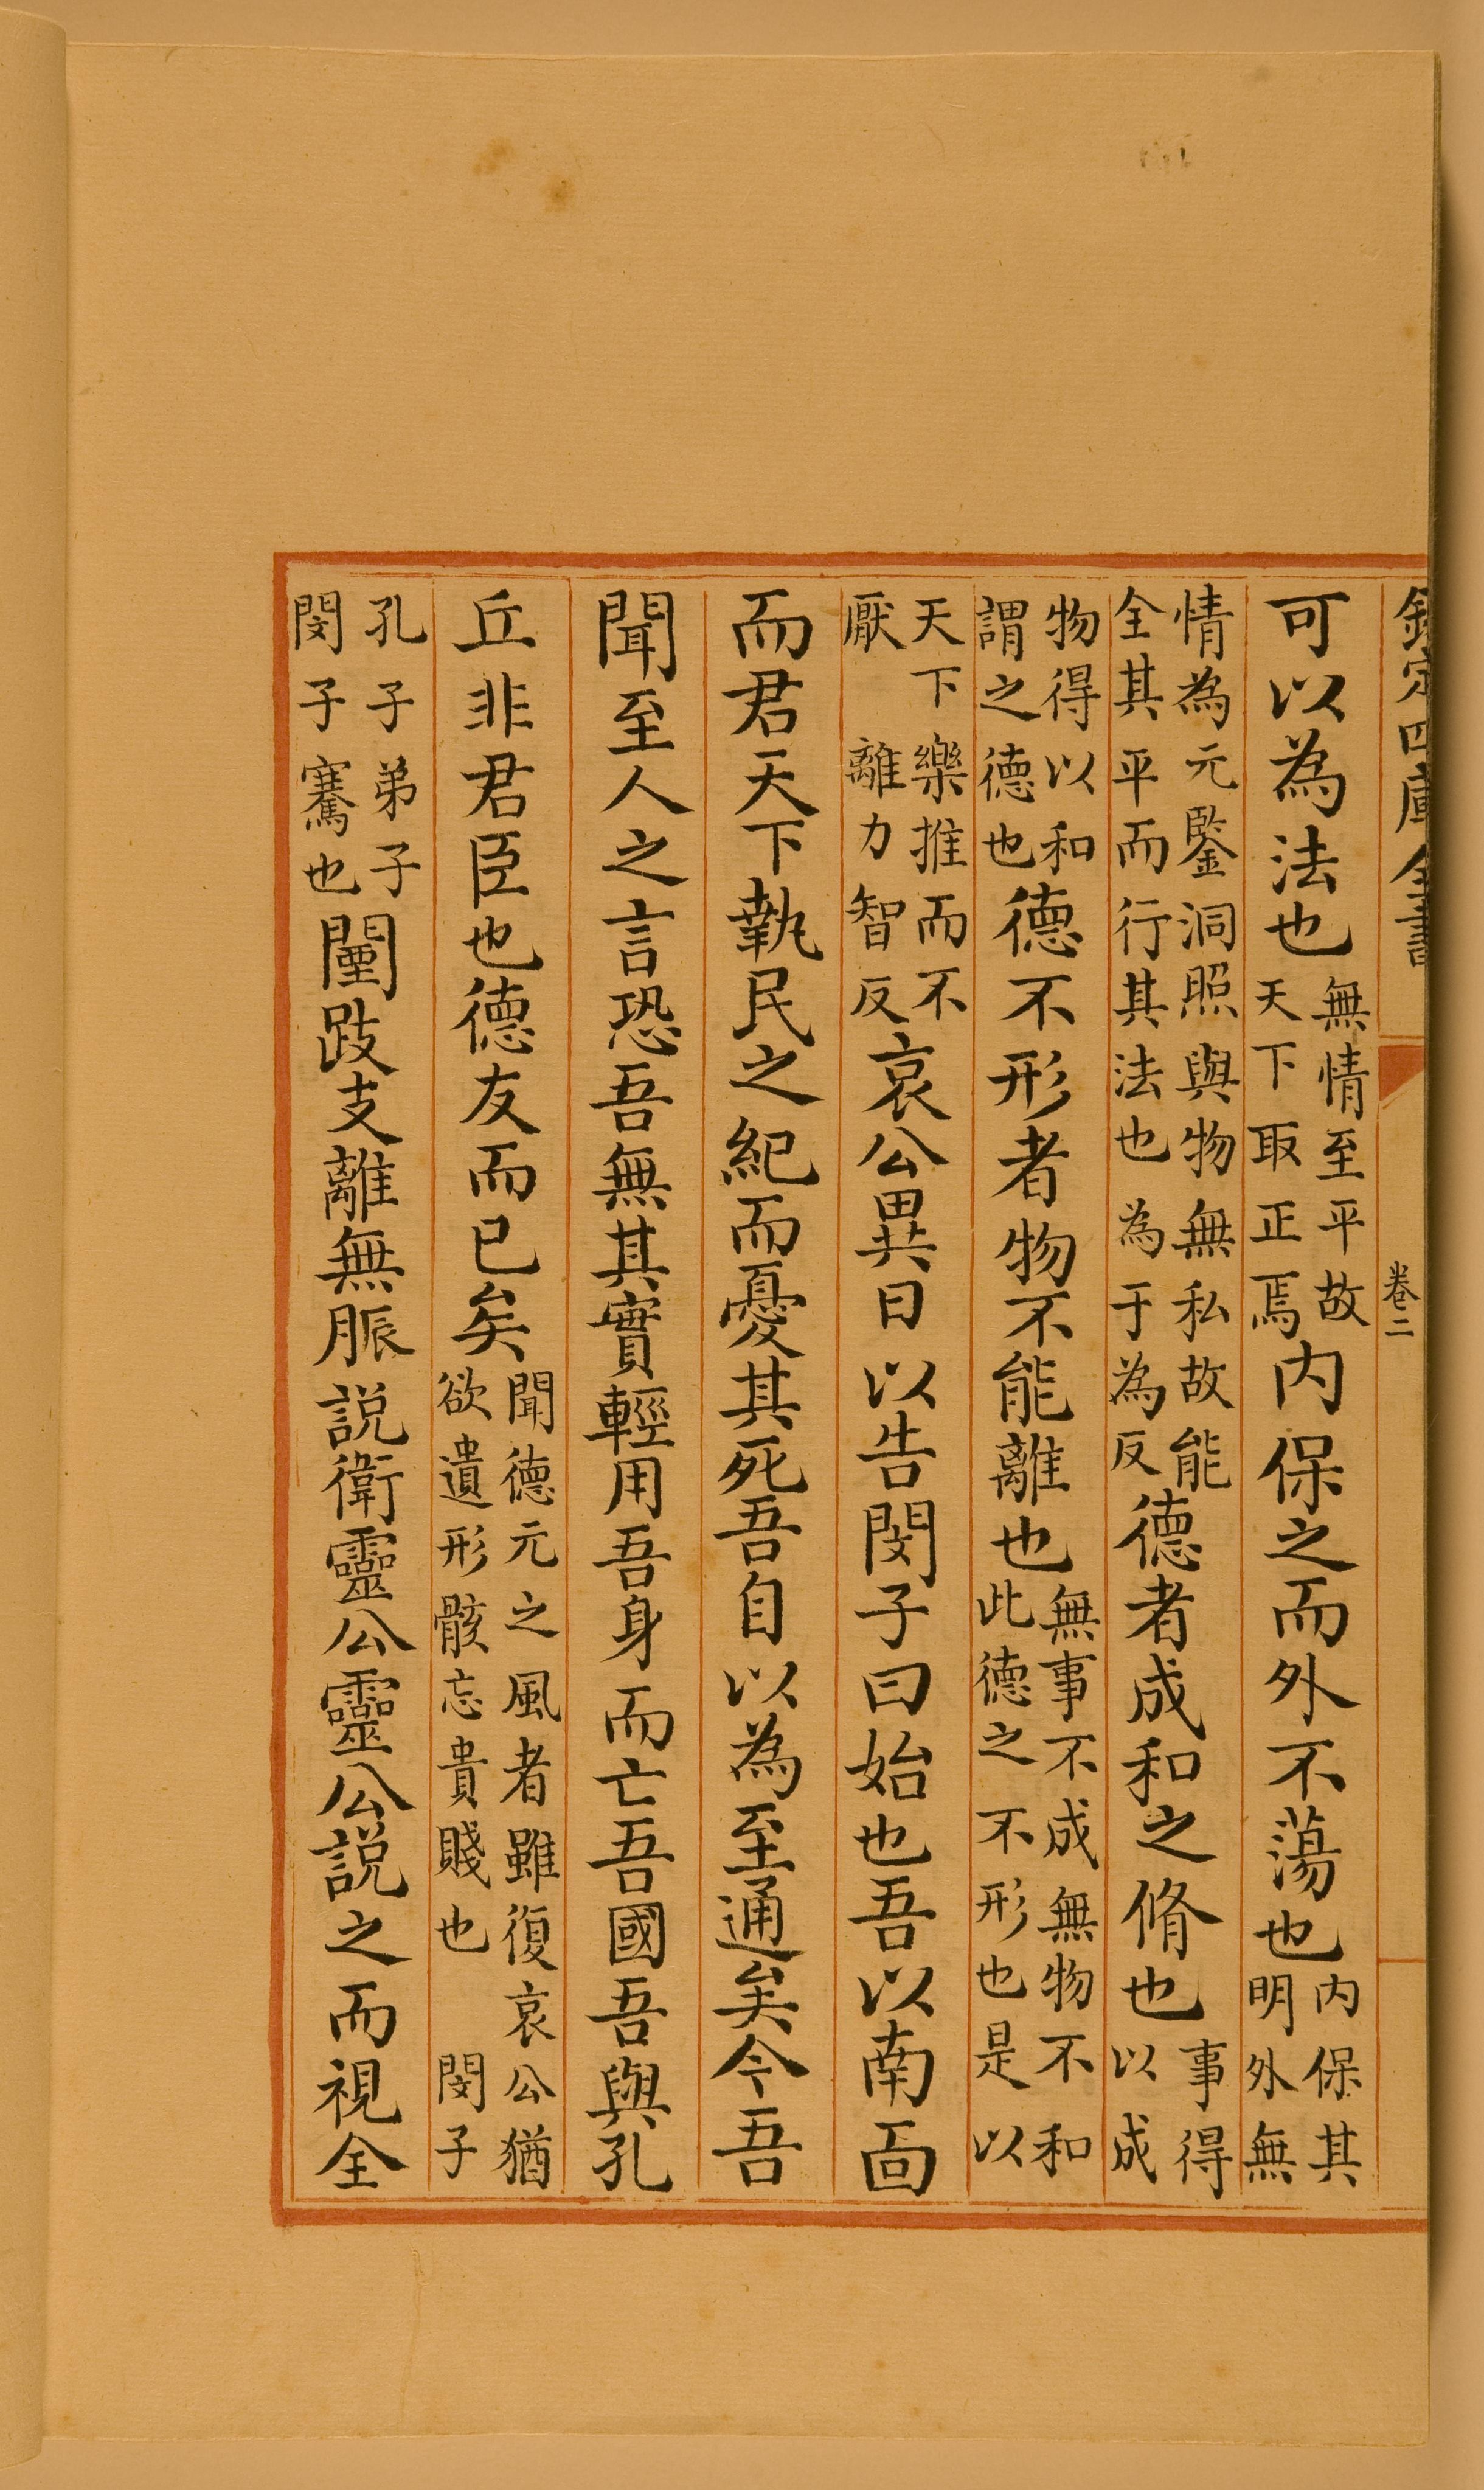 欽定四庫全書 卷二
可以為法也無情至平故天下取正焉内保之而外不蕩也内保其明外無
情為元鑒洞照與物無私故能全其平而行其法也 為于為反德者成和之脩也事得以成
物得以和謂之德也德不形者物不能離也無事不成無物不和此德之不形也是以
天下樂推而不厭 離力智反哀公異日以告閔子曰始也吾以南靣
而君天下執民之紀而憂其死吾自以為至通矣今吾
聞至人之言恐吾無其實輕用吾身而亡吾國吾與孔
丘非君臣也德友而已矣聞德元之風者雖復哀公猶欲遺形骸忘貴賤也 閔子
孔子弟子閔子騫也闉跂支離無脤説衛靈公靈公説之而視全